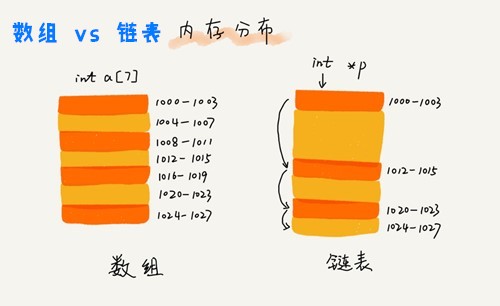 数组 vs 链表 内存分布
int a[7]
1000-1003
1004-1007
1008-1011
1012-1015
1016-1019
1020-1023
1024-1027
数组
int *p
1000-1003
1012-1015
1020-1023
1024-1027
链表